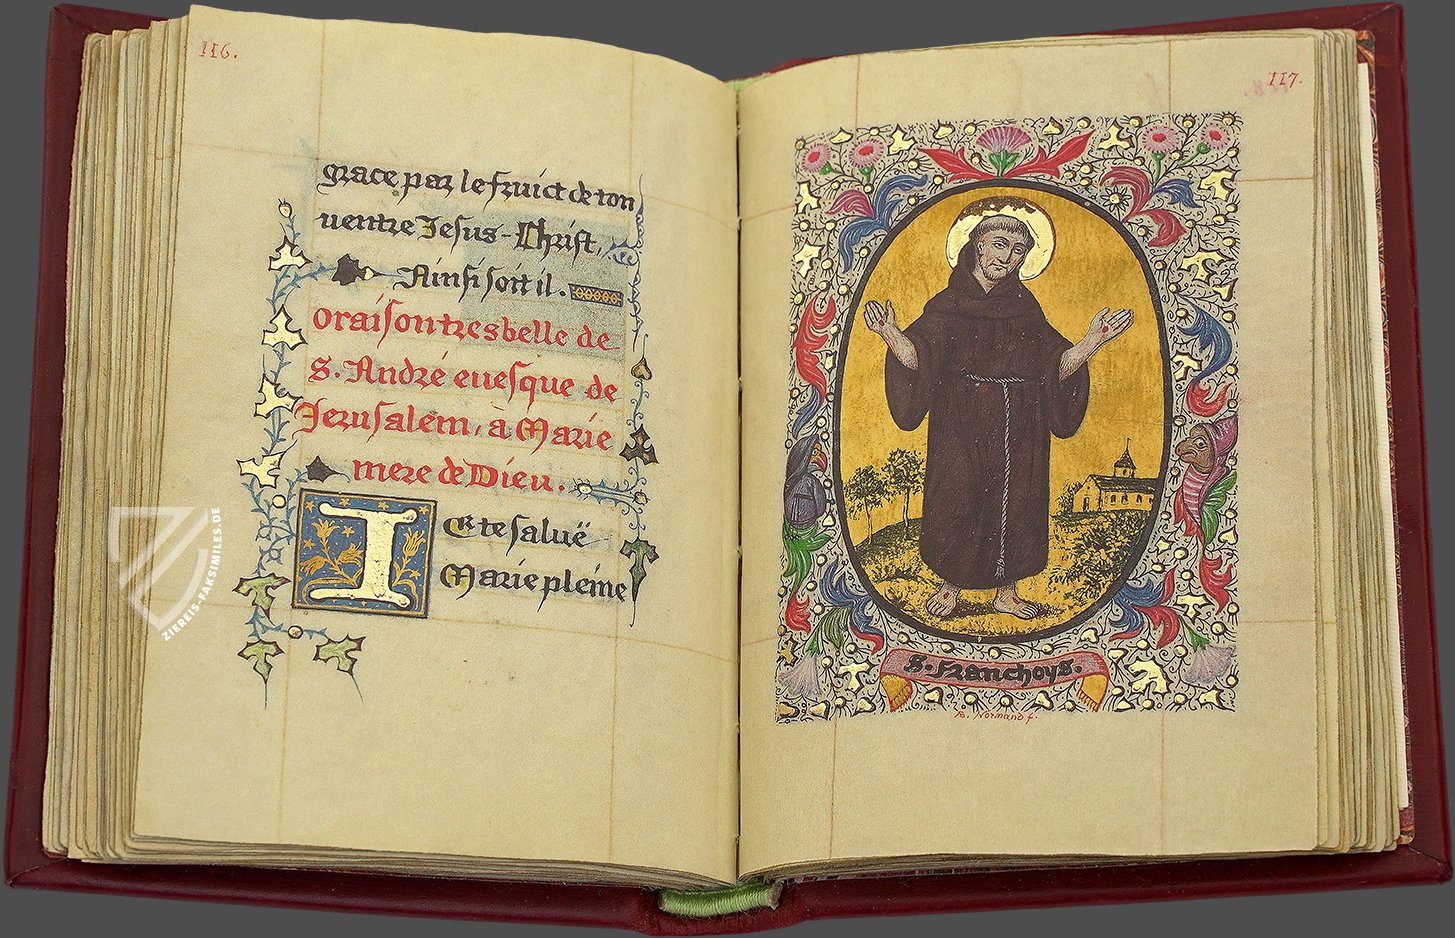 116.
grace par le fruict de ton
ventre Jesus-Christ,
Ainsi soit il.
oraison tres belle de
S. André evesque de
Jerusalem, à Marie
mere de Dieu.
IE te saluë
Marie pleine
117.
S. Franchoys.
Normand f.
ZIEREIS-FAKSIMILES.DE